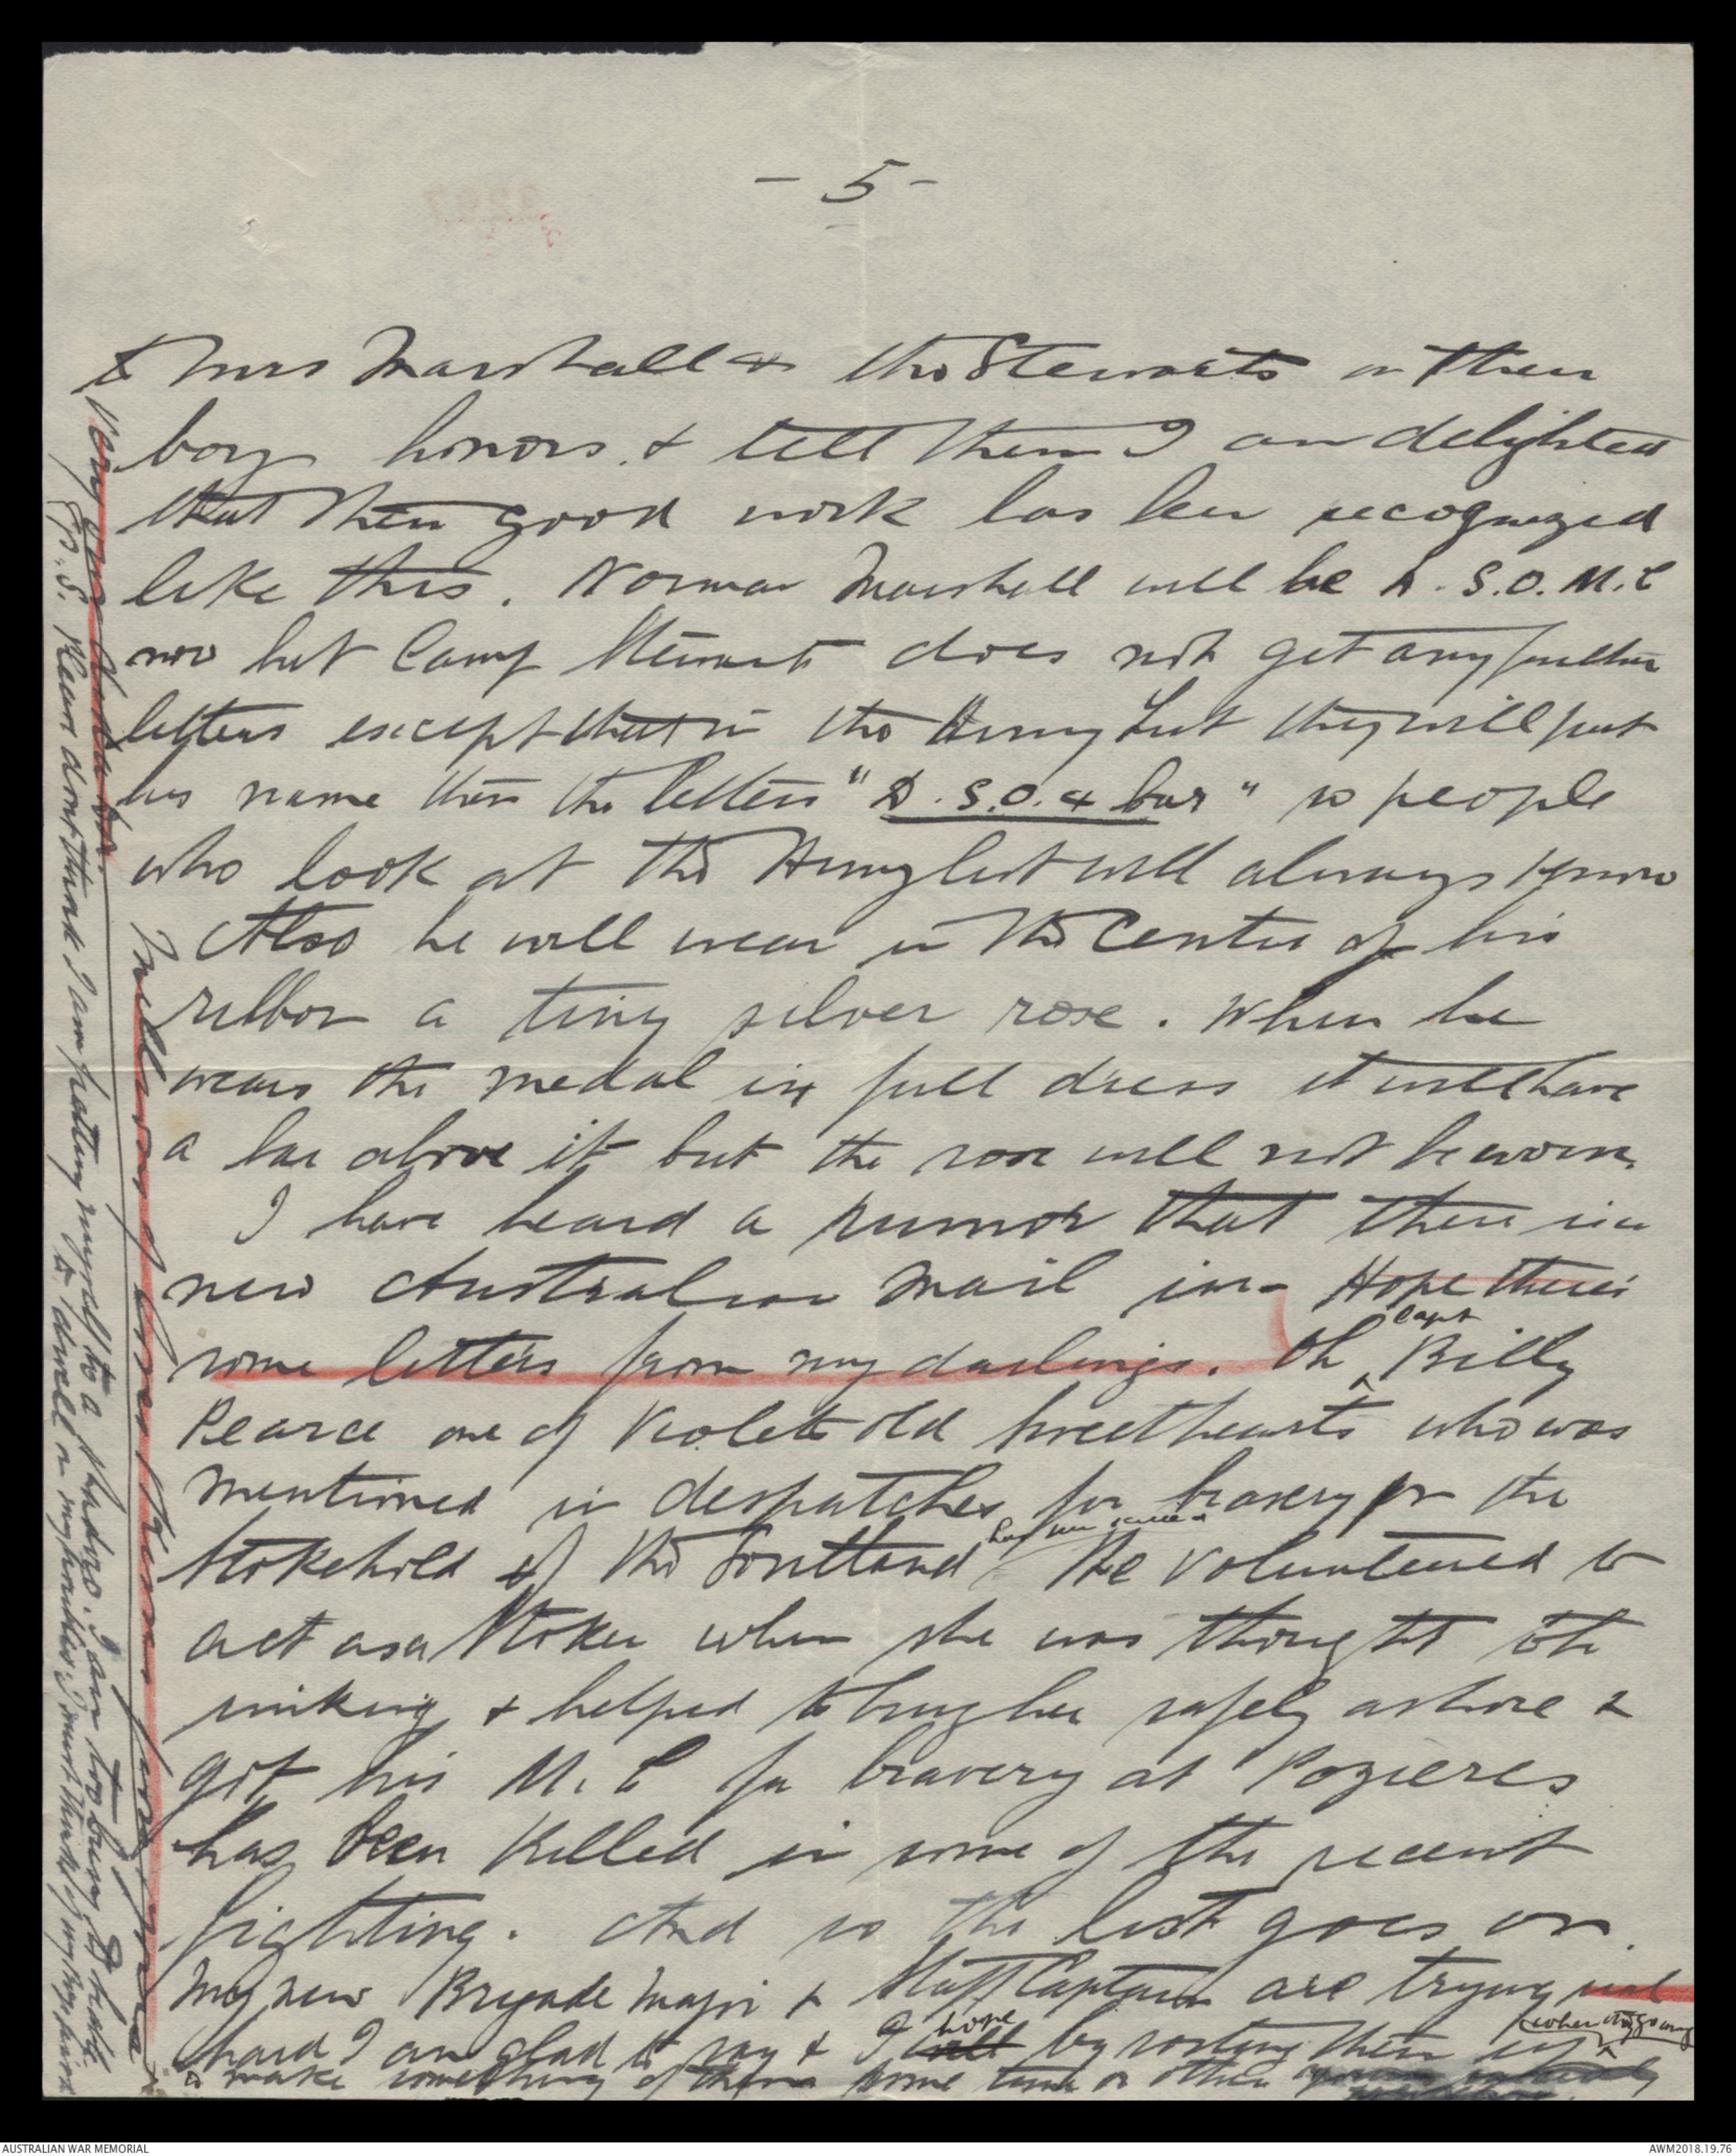 - 5 -
to Mrs Marshall & the Stewarts on their
boys honors & tell them I am delighted
that their good work has been recognized
like this. Norman Marshall will be D.S.O. M.C
now but Camp Stewart does not get any further
letters except that in the Army List they will put
his name then the letters "D.S.O. & bar" so people
who look at the Army list will always know
Also he will wear in the Center of his
ribbon a tiny silver rose. When he
wears the medal in full dress it will have
a bar above it but the rose will not be worn.
I have heard a rumor that there is a
new Australian mail in - Hope there's
some letters from my darlings. Oh Capt Billy
Pearce one of Violets old sweethearts who was
mentioned in despatches for bravery in the
Stokehold of the Southland He volunteered to
act as a Stoker when she was thought to be
sinking & helped to bring her safely ashore &
got his M.C for bravery at Pozieres
has been Killed in some of the recent
fighting. And so the list goes on.
My new Brigade Major & Staff Captain are trying real
hard I am glad to say & I hope by rousting them up when they go wrong
to make something of them some time or other
Very good
Millions of kisses from
P.S. Please dont think I am patting myself to a
I am too busy to
to dwell on my